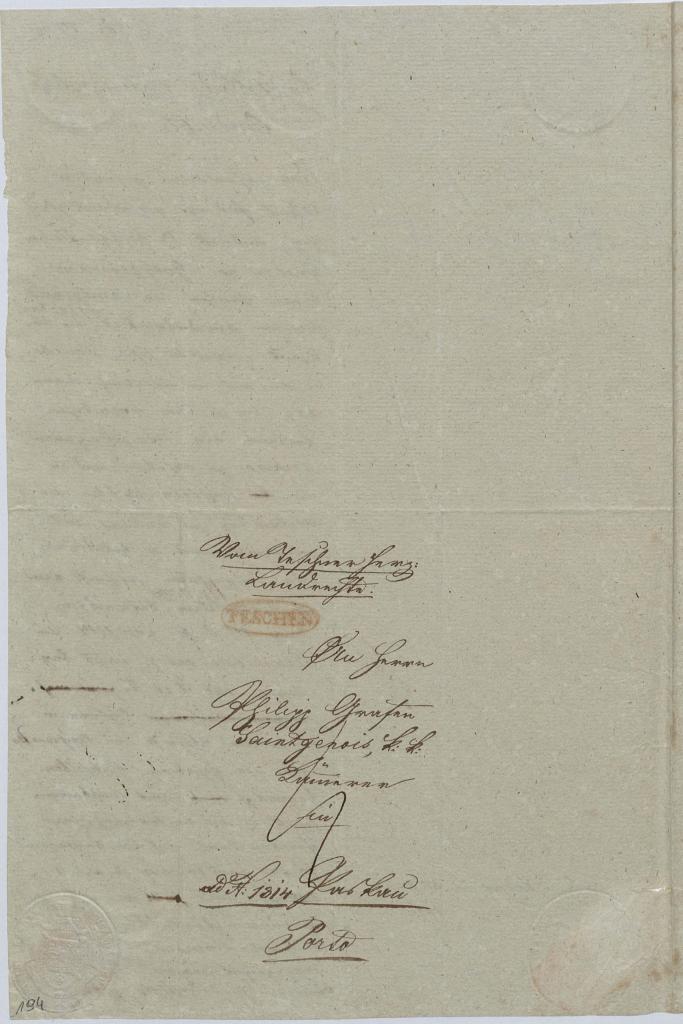 Vom Teschner Herz:
Landrechte.
TESCHEN
An Herrn
Philipp Grafen
Saintgenois, k: k:
Kämmerer
in
ad N: 1314 Paskau
Porto
194